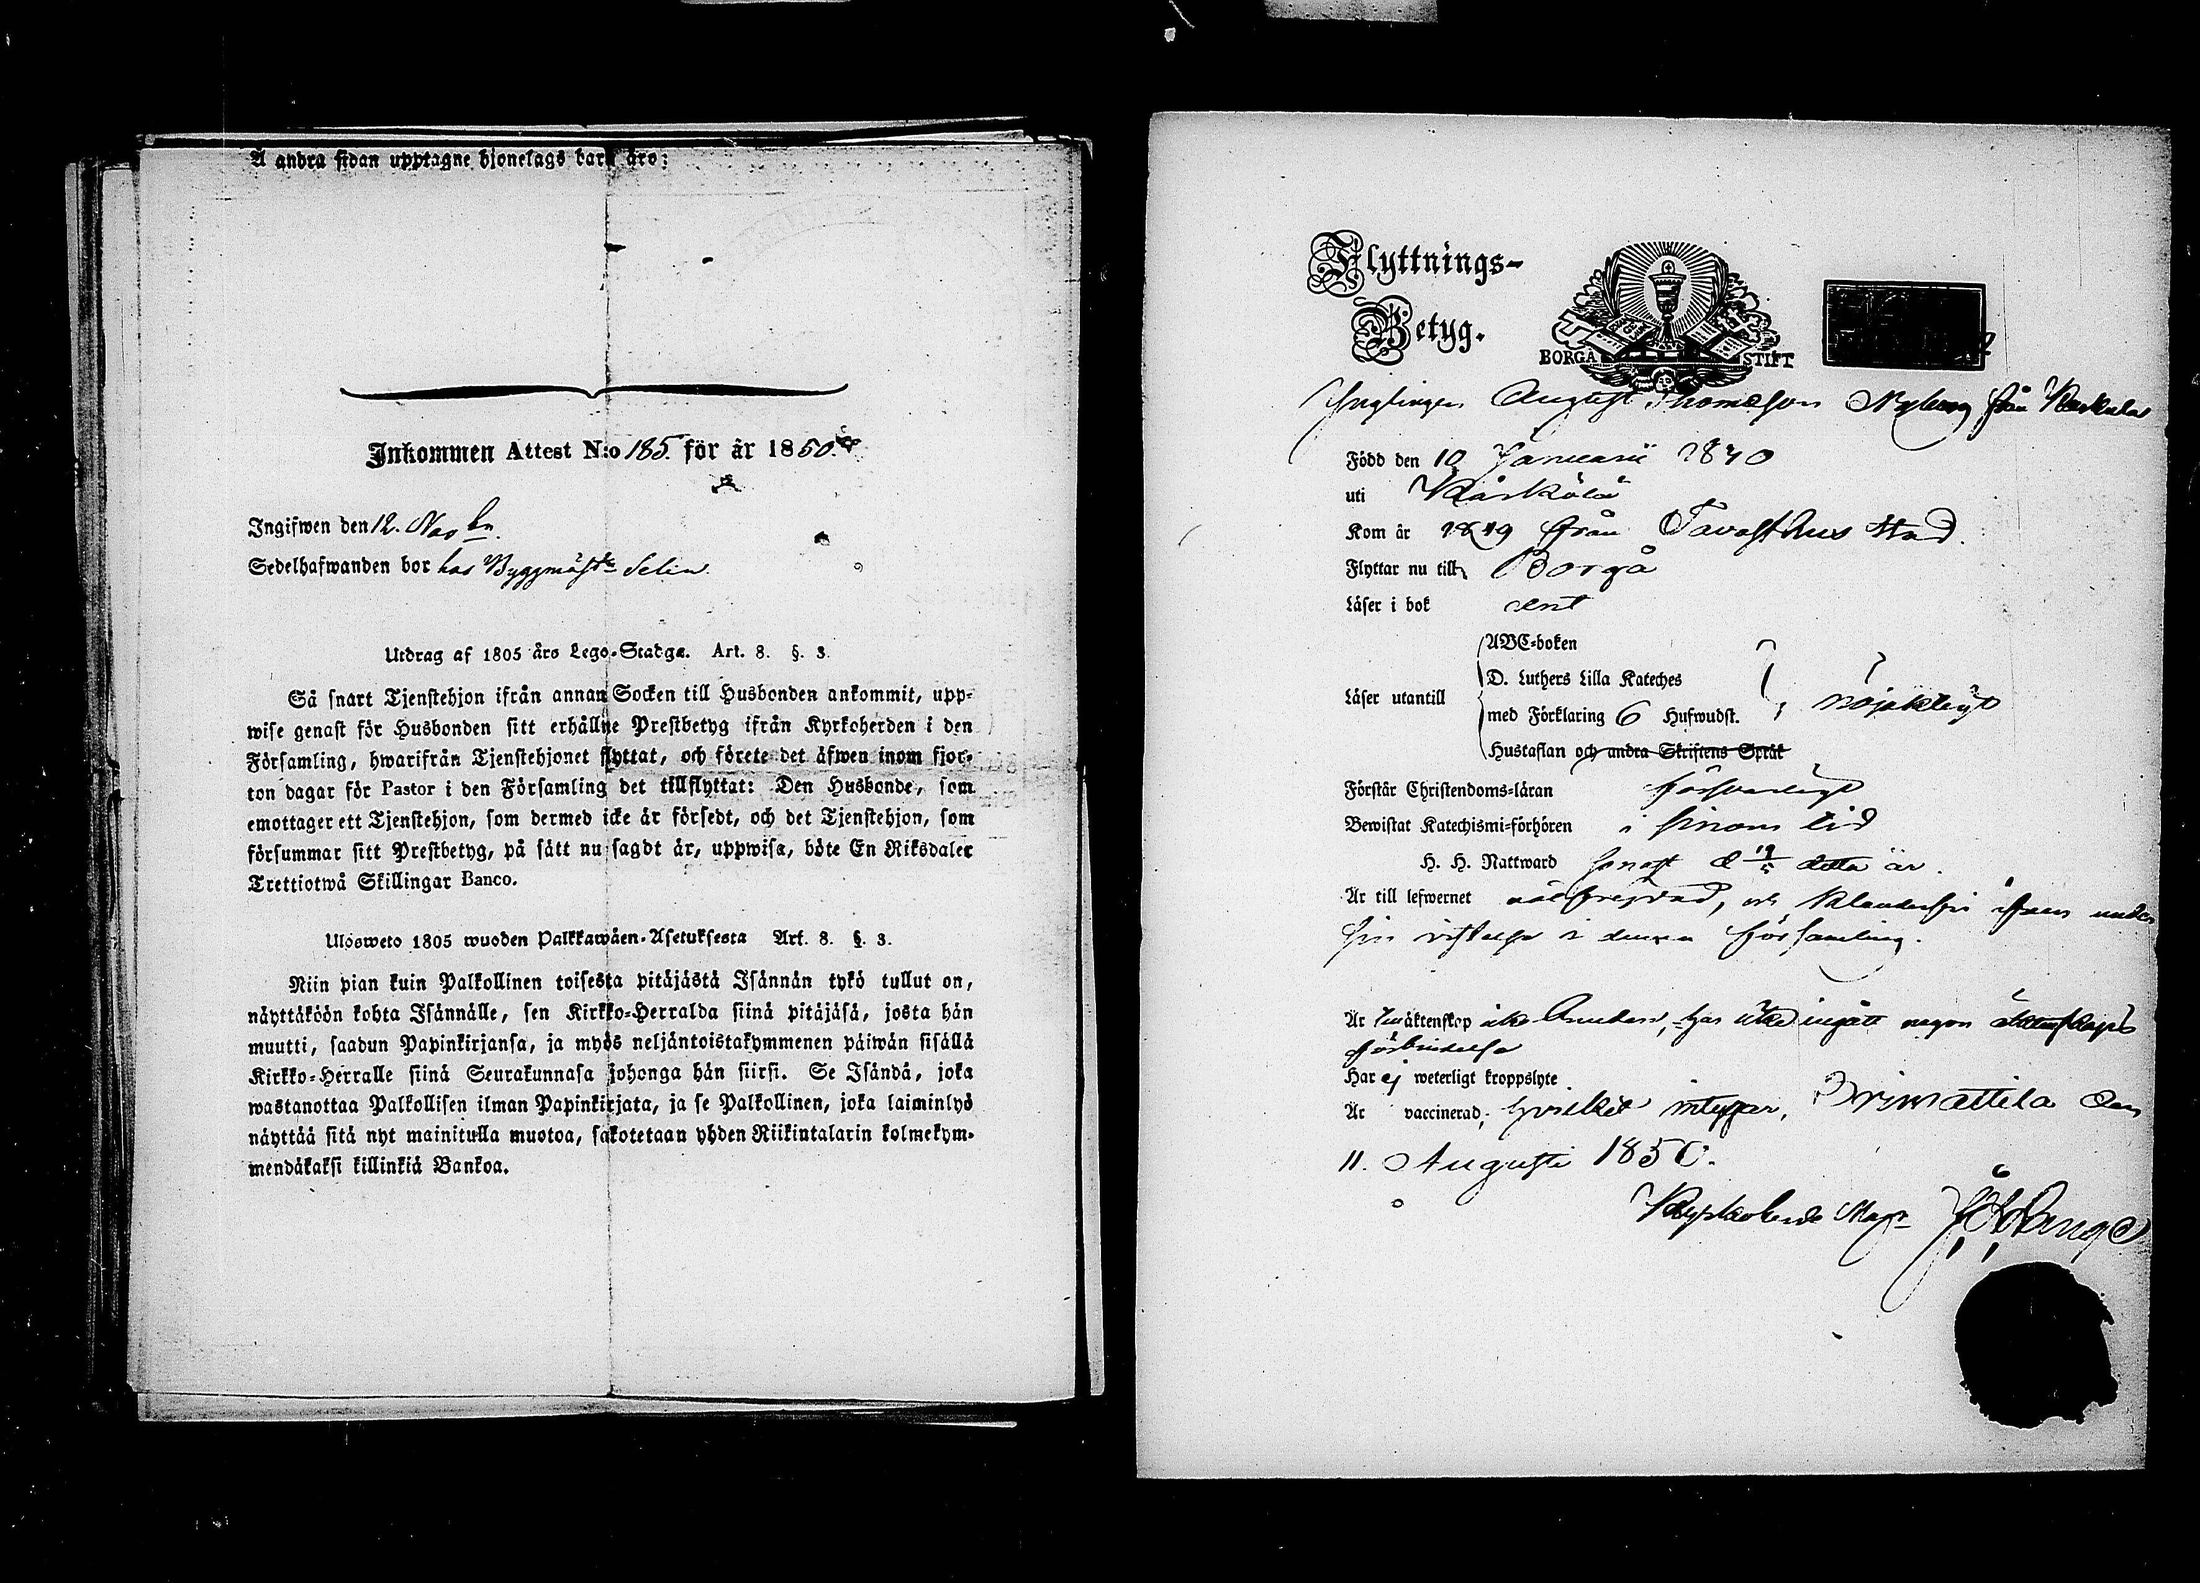 Å andra sidan upptagne hjonelags barn äro:
Inkommen Attest N:o 185. för år 1850.
Ingifwen den 12. Nov bn.
Sedelhafwanden bor hos Byggmäst. Selin.
Utdrag af 1805 års Lego-Stadga. Art. 8. §. 3.
Så snart Tjenstehjon ifrån annan Socken till Husbonden ankommit, upp-
wise genast för Husbonden sitt erhållne Prestbetyg ifrån Kyrkoherden i den
Församling, hwarifrån Tjenstehjonet flyttat, och förete det äfwen inom fjor-
ton dagar för Pastor i den Församling det tillflyttat: Den Husbonde, som
emottager ett Tjenstehjon, som dermed icke är försedt, och det Tjenstehjon, som
försummar sitt Prestbetyg, på sätt nu sagdt är, uppwisa, böte En Riksdaler
Trettiotwå Skillingar Banco.
Ulosweto 1805 wuoden Palkkawäen-Asetuksesta Art. 8. §. 3.
Niin pian kuin Palkollinen toisesta pitäjästä Isännän tykö tullut on,
näyttäköön kohta Isännälle, sen Kirkko-Herralda siinä pitäjäsä, josta hän
muutti, saadun Papinkirjansa, ja myös neljäntoistakymmenen päiwän sisällä
Kirkko-Herralle siinä Seurakunnasa johonga hän siirsi. Se Isändä, joka
wastanottaa Palkollisen ilman Papinkirjata, ja se Palkollinen, joka laiminlyö
näyttää sitä nyt mainitulla muotoa, sakotetaan yhden Riikintalarin kolmekym-
mendäkaksi killinkiä Bankoa.
Flyttnings-
Betyg.
BORGÅ STIFT
Ynglingen August Thomasson Nyberg från
Född den 10 Januarii 1840
uti Kärkölä
Kom år 1849 från Tavasthus stad.
Flyttar nu till Borgå
Läser i bok rent
Läser utantill
ABC-boken
D. Luthers Lilla Kateches
med Förklaring 6 Hufwudst.
Hustaflan och andra Skriftens Språk
nöjaktigt
Förstår Christendoms-läran försvarligt
Bewistat Katechismi-förhören i sinom tid
H. H. Nattward senast d 19 detta år.
Är till lefwernet välfrejdad, och klanderfri äfven under
sin vistelse i denna församling.
Är i äktenskap icke bunden, har icke ingått någon äktenskaps
förbindelse
Har ej weterligt kroppslyte
Är vaccinerad; hvilket intygar, Orimattila den
11. Augusti 1850.
Kyrkoherde